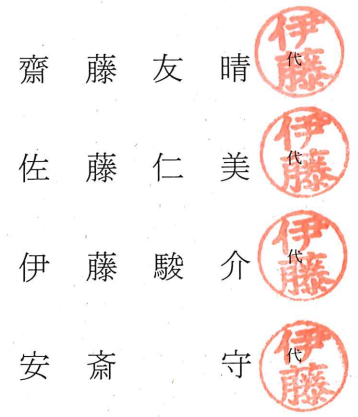 齋藤友晴 代 伊藤
佐藤仁美 代 伊藤
伊藤駿介 代 伊藤
安斎 守 代 伊藤